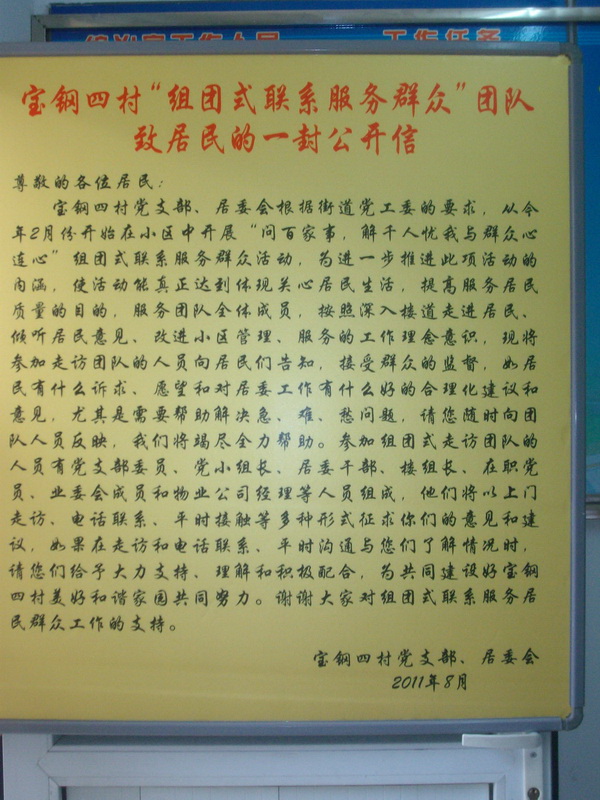 工作任务
宝钢四村“组团式联系服务群众”团队
致居民的一封公开信
尊敬的各位居民：
宝钢四村党支部、居委会根据街道党工委的要求，从今
年2月份开始在小区中开展“问百家事，解千人忧我与群众心
连心”组团式联系服务群众活动，为进一步推进此项活动的
内涵，使活动能真正达到体现关心居民生活，提高服务居民
质量的目的，服务团队全体成员，按照深入楼道走进居民、
倾听居民意见、改进小区管理、服务的工作理念意识，现将
参加走访团队的人员向居民们告知，接受群众的监督，如居
民有什么诉求、愿望和对居委工作有什么好的合理化建议和
意见，尤其是需要帮助解决急、难、愁问题，请您随时向团
队人员反映，我们将竭尽全力帮助。参加组团式走访团队的
人员有党支部委员、党小组长、居委干部、楼组长、在职党
员、业委会成员和物业公司经理等人员组成，他们将以上门
走访、电话联系、平时接触等多种形式征求你们的意见和建
议，如果在走访和电话联系、平时沟通与您们了解情况时，
请您们给予大力支持、理解和积极配合，为共同建设好宝钢
四村美好和谐家园共同努力。谢谢大家对组团式联系服务居
民群众工作的支持。
宝钢四村党支部、居委会
2011年8月